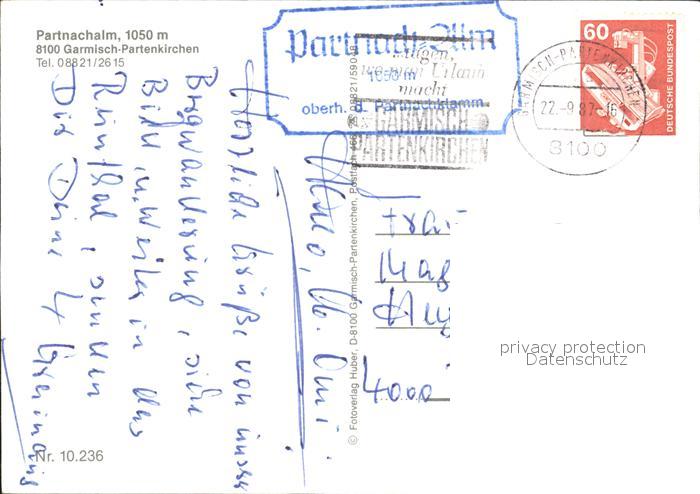 Partnachalm, 1050 m
8100 Garmisch-Partenkirchen
Tel. 08821/2615
Partnach-Alm
1050 m
oberh. d. Partnachklamm
...sagen,
wo man Urlaub
macht
GARMISCH
PARTENKIRCHEN
GARMISCH-PARTENKIRCHEN
22.-9.87-16
8100
60
DEUTSCHE BUNDESPOST
Hallo, lb. Omi!
Herzliche Grüße von unserer
Bergwanderung, siehe
Bild u. weiter in das
Reintal, senden
Dir Deine 4
Frau
Mag
4000
© Fotoverlag Huber, D-8100 Garmisch-Partenkirchen, Postfach
privacy protection
Datenschutz
Nr. 10.236